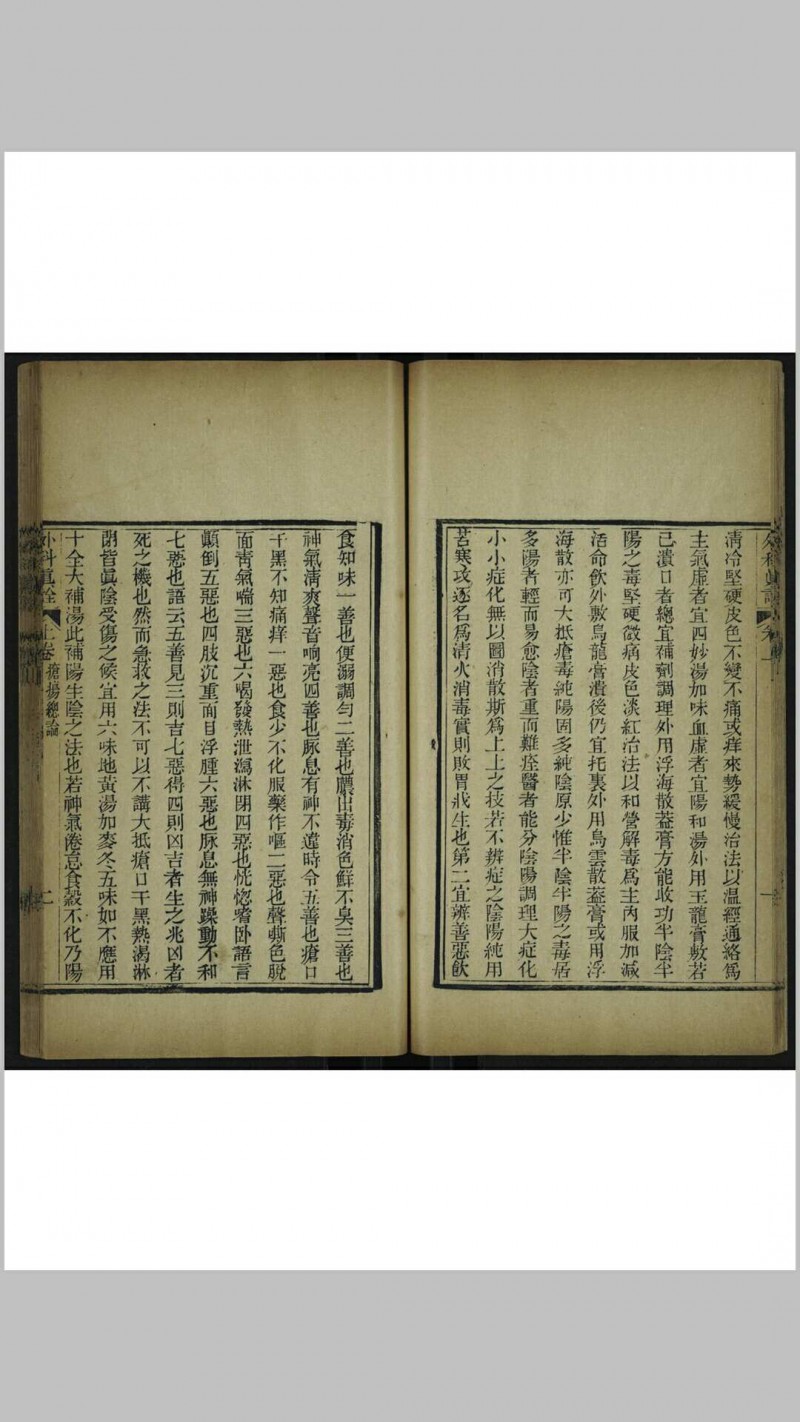 清冷堅硬皮色不變不痛或痒來勢緩慢治法以温經通絡爲
主氣虛者宜四妙湯加味血虛者宜陽和湯外用玉龍膏敷若
已潰口者總宜補劑調理外用浮海散葢膏方能收功半陰半
陽之毒堅硬微痛皮色淡紅治法以和營解毒爲主內服加減
活命飲外敷烏龍膏潰後仍宜托裏外用烏雲散葢膏或用浮
海散亦可大抵瘡毒純陽固多純陰原少惟半陰半陽之毒居
多陽者輕而易愈陰者重而難痊醫者能分陰陽調理大症化
小小症化無以圖消散斯爲上上之技若不辨症之陰陽純用
苦寒攻逐名爲清火消毒實則敗胃戕生也第二宜辨善惡飲
食知味一善也便溺調勻二善也膿出毒消色鮮不臭三善也
神氣清爽聲音响亮四善也脉息有神不違時令五善也瘡口
干黑不知痛痒一惡也食少不化服藥作嘔二惡也聲嘶色脫
面青氣喘三惡也六喝發熱泄瀉淋閉四惡也恍惚嗜卧語言
顚倒五惡也四肢沉重面目浮腫六惡也脉息無神躁動不和
七惡也語云五善見三則吉七惡得四則凶吉者生之兆凶者
死之機也然而急救之法不可以不講大抵瘡口干黑熱渴淋
閉皆眞陰受傷之候宜用六味地黃湯加麥冬五味如不應用
十全大補湯此補陽生陰之法也若神氣倦怠食穀不化乃陽
外科眞詮 上卷 瘡瘍總論 二